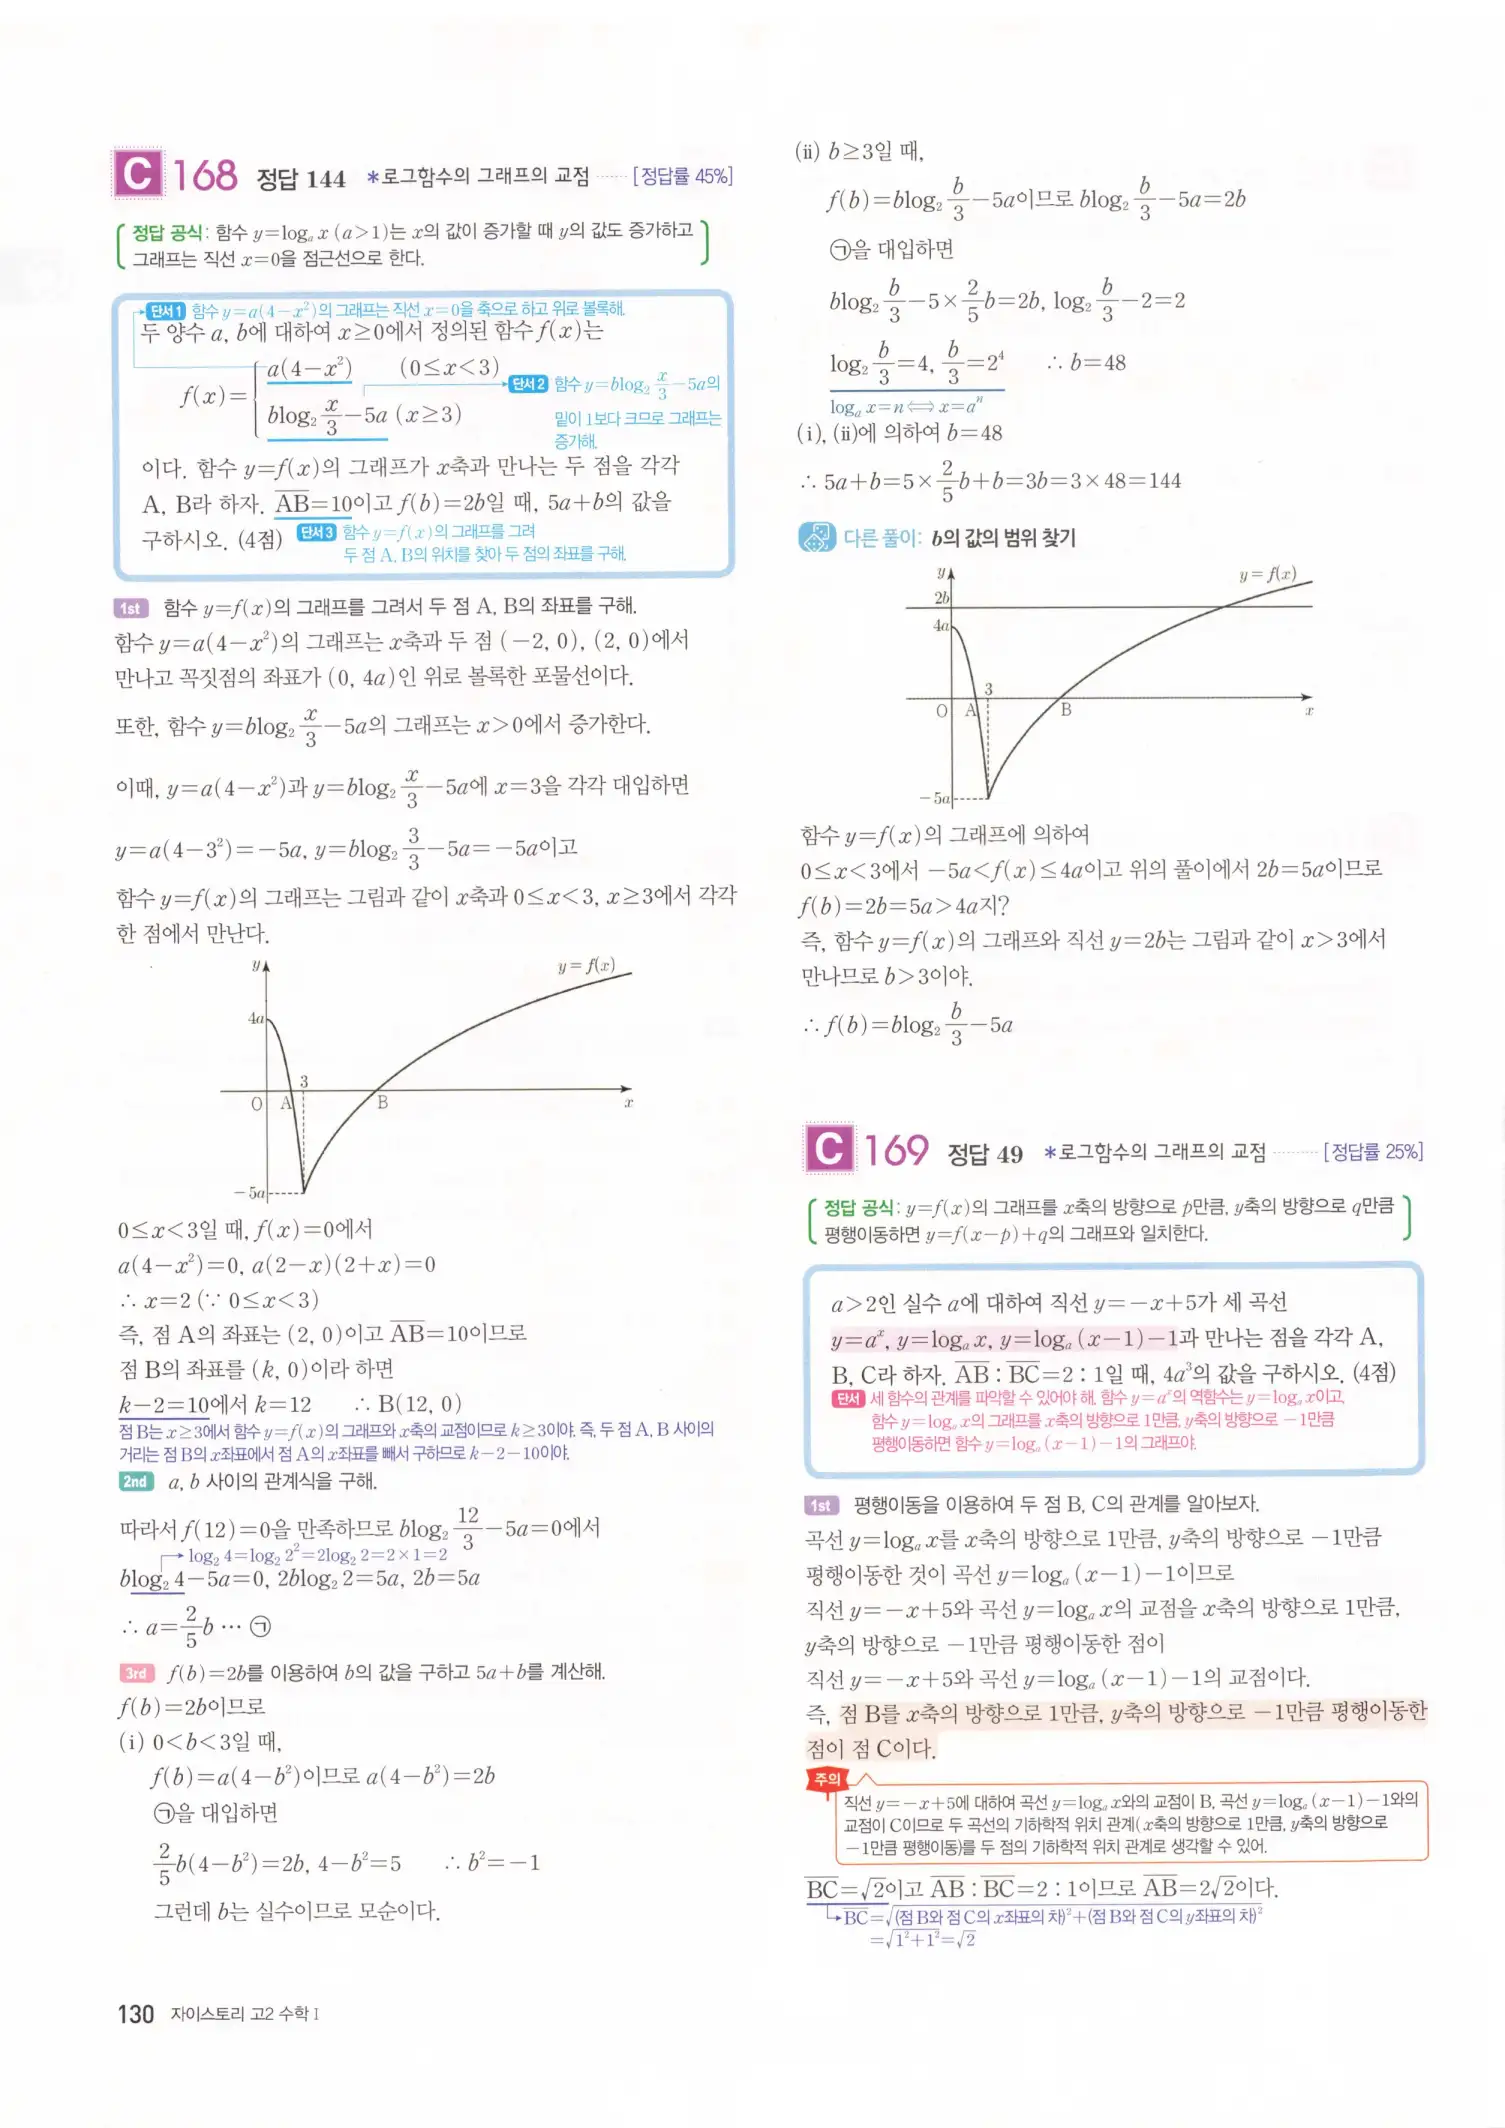 C 168 정답 144 *로그함수의 그래프의 교점 ······ [정답률 45%]
정답 공식: 함수 y=logₐ x (a>1)는 x의 값이 증가할 때 y의 값도 증가하고
그래프는 직선 x=0을 점근선으로 한다.
단서1 함수 y=a(4-x²)의 그래프는 직선 x=0을 축으로 하고 위로 볼록해.
두 양수 a, b에 대하여 x≥0에서 정의된 함수 f(x)는
f(x)= { a(4-x²) (0≤x<3)
blog₂ x/3 -5a (x≥3)
단서2 함수 y=blog₂ x/3 -5a의
밑이 1보다 크므로 그래프는
증가해.
이다. 함수 y=f(x)의 그래프가 x축과 만나는 두 점을 각각
A, B라 하자. AB=10이고 f(b)=2b일 때, 5a+b의 값을
구하시오. (4점) 단서3 함수 y=f(x)의 그래프를 그려
두 점 A, B의 위치를 찾아 두 점의 좌표를 구해.
1st 함수 y=f(x)의 그래프를 그려서 두 점 A, B의 좌표를 구해.
함수 y=a(4-x²)의 그래프는 x축과 두 점 (-2, 0), (2, 0)에서
만나고 꼭짓점의 좌표가 (0, 4a)인 위로 볼록한 포물선이다.
또한, 함수 y=blog₂ x/3 -5a의 그래프는 x>0에서 증가한다.
이때, y=a(4-x²)과 y=blog₂ x/3 -5a에 x=3을 각각 대입하면
y=a(4-3²)=-5a, y=blog₂ 3/3 -5a=-5a이고
함수 y=f(x)의 그래프는 그림과 같이 x축과 0≤x<3, x≥3에서 각각
한 점에서 만난다.
y y=f(x)
4a
3
O A B x
-5a
0≤x<3일 때, f(x)=0에서
a(4-x²)=0, a(2-x)(2+x)=0
∴ x=2 (∵ 0≤x<3)
즉, 점 A의 좌표는 (2, 0)이고 AB=10이므로
점 B의 좌표를 (k, 0)이라 하면
k-2=10에서 k=12 ∴ B(12, 0)
점 B는 x≥3에서 함수 y=f(x)의 그래프와 x축의 교점이므로 k≥3이야. 즉, 두 점 A, B 사이의
거리는 점 B의 x좌표에서 점 A의 x좌표를 빼서 구하므로 k-2=10이야.
2nd a, b 사이의 관계식을 구해.
따라서 f(12)=0을 만족하므로 blog₂ 12/3 -5a=0에서
log₂ 4=log₂ 2²=2log₂ 2=2×1=2
blog₂ 4-5a=0, 2blog₂ 2=5a, 2b=5a
∴ a=2/5 b ··· ㉠
3rd f(b)=2b를 이용하여 b의 값을 구하고 5a+b를 계산해.
f(b)=2b이므로
(i) 0<b<3일 때,
f(b)=a(4-b²)이므로 a(4-b²)=2b
㉠을 대입하면
2/5 b(4-b²)=2b, 4-b²=5 ∴ b²=-1
그런데 b는 실수이므로 모순이다.
130 자이스토리 고2 수학 I
(ii) b≥3일 때,
f(b)=blog₂ b/3 -5a이므로 blog₂ b/3 -5a=2b
㉠을 대입하면
blog₂ b/3 -5× 2/5 b=2b, log₂ b/3 -2=2
log₂ b/3 =4, b/3 =2⁴ ∴ b=48
logₐ x=n ⟺ x=aⁿ
(i), (ii)에 의하여 b=48
∴ 5a+b=5× 2/5 b+b=3b=3×48=144
다른 풀이: b의 값의 범위 찾기
y y=f(x)
2b
4a
3
O A B x
-5a
함수 y=f(x)의 그래프에 의하여
0≤x<3에서 -5a<f(x)≤4a이고 위의 풀이에서 2b=5a이므로
f(b)=2b=5a>4a지?
즉, 함수 y=f(x)의 그래프와 직선 y=2b는 그림과 같이 x>3에서
만나므로 b>3이야.
∴ f(b)=blog₂ b/3 -5a
C 169 정답 49 *로그함수의 그래프의 교점 ······ [정답률 25%]
정답 공식: y=f(x)의 그래프를 x축의 방향으로 p만큼, y축의 방향으로 q만큼
평행이동하면 y=f(x-p)+q의 그래프와 일치한다.
a>2인 실수 a에 대하여 직선 y=-x+5가 세 곡선
y=aˣ, y=logₐ x, y=logₐ (x-1)-1과 만나는 점을 각각 A,
B, C라 하자. AB : BC=2 : 1일 때, 4a³의 값을 구하시오. (4점)
단서 세 함수의 관계를 파악할 수 있어야 해. 함수 y=aˣ의 역함수는 y=logₐ x이고,
함수 y=logₐ x의 그래프를 x축의 방향으로 1만큼, y축의 방향으로 -1만큼
평행이동하면 함수 y=logₐ (x-1)-1의 그래프야.
1st 평행이동을 이용하여 두 점 B, C의 관계를 알아보자.
곡선 y=logₐ x를 x축의 방향으로 1만큼, y축의 방향으로 -1만큼
평행이동한 것이 곡선 y=logₐ (x-1)-1이므로
직선 y=-x+5와 곡선 y=logₐ x의 교점을 x축의 방향으로 1만큼,
y축의 방향으로 -1만큼 평행이동한 점이
직선 y=-x+5와 곡선 y=logₐ (x-1)-1의 교점이다.
즉, 점 B를 x축의 방향으로 1만큼, y축의 방향으로 -1만큼 평행이동한
점이 점 C이다.
주의
직선 y=-x+5에 대하여 곡선 y=logₐ x와의 교점이 B, 곡선 y=logₐ (x-1)-1와의
교점이 C이므로 두 곡선의 기하학적 위치 관계(x축의 방향으로 1만큼, y축의 방향으로
-1만큼 평행이동)를 두 점의 기하학적 위치 관계로 생각할 수 있어.
BC=√2이고 AB : BC=2 : 1이므로 AB=2√2이다.
BC=√(점 B와 점 C의 x좌표의 차)²+(점 B와 점 C의 y좌표의 차)²
=√1²+1²=√2